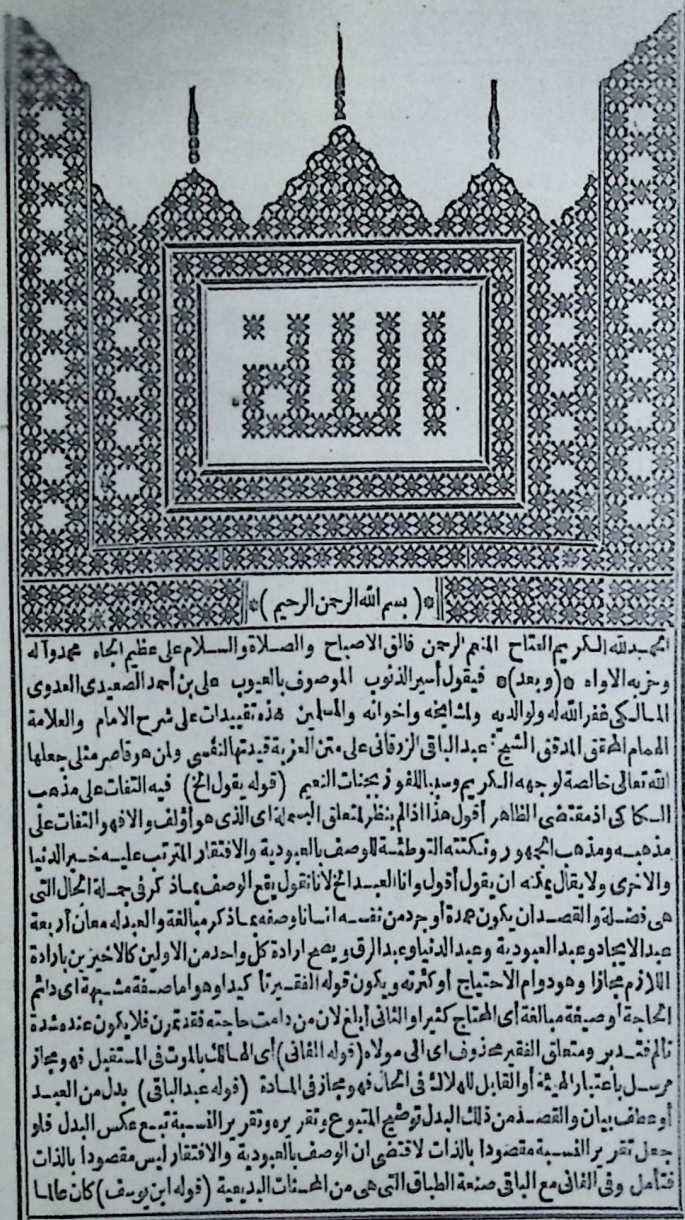 الله
*( بسم الله الرحمن الرحيم )*
الحمد لله الكريم الفتاح المنعم الرحمن فالق الاصباح والصلاة والسلام على عظيم الجاه محمد وآله
وحزبه الاواه *(وبعد)* فيقول أسير الذنوب الموصوف بالعيوب على بن أحمد الصعيدى العدوى
المالكى غفر الله له ولوالديه ولمشايخه واخوانه والمسلمين هذه تقييدات على شرح الامام والعلامة
الهمام المحقق المدقق الشيخ عبد الباقى الزرقانى على متن العزية قيدتها لنفسى ولمن هو قاصر مثلى جعلها
الله تعالى خالصة لوجهه الكريم وسببا للفوز بجنات النعيم (قوله يقول الخ) فيه التفات على مذهب
السكاكى اذ مقتضى الظاهر أقول هذا اذا لم ينظر لمتعلق البسملة اى الذى هو أؤلف والا فهو التفات على
مذهبه ومذهب الجمهور ونكتته التوطئة للوصف بالعبودية والافتقار المترتب عليه خير الدنيا
والاخرى ولا يقال يمكنه ان يقول أقول وانا العبد الخ لانا نقول يقع الوصف بما ذكر فى جملة الحال التى
هى فضلة والقصد ان يكون عمدة أو جرد من نفسه انسانا وصفه بما ذكر مبالغة والعبد له معان أربعة
عبد الايجاد وعبد العبودية وعبد الدنيا وعبد الرق ويصح ارادة كل واحد من الاولين كالاخيرين بارادة
اللازم مجازا وهو دوام الاحتياج أو كثرته ويكون قوله الفقير تأكيدا وهو اما صفة مشبهة اى دائم
الحاجة أو صيغة مبالغة أى المحتاج كثيرا والثانى أبلغ لان من دامت حاجته فقد تمرن فلا يكون عنده شدة
تألم فتدبر ومتعلق الفقير محذوف اى الى مولاه (قوله الفانى) أى الهالك بالموت فى المستقبل فهو مجاز
مرسل باعتبار الهيئة أو القابل للهلاك فى الحال فهو مجاز فى المادة (قوله عبد الباقى) بدل من العبد
أو عطف بيان والقصد من ذلك البدل توضيح المتبوع وتقريره وتقرير النسبة تبع عكس البدل فلو
جعل تقرير النسبة مقصودا بالذات لاقتضى ان الوصف بالعبودية والافتقار ليس مقصودا بالذات
فتأمل وفى الفانى مع الباقى صنعة الطباق التى هى من المحسنات البديعية (قوله ابن يوسف) كان عالما